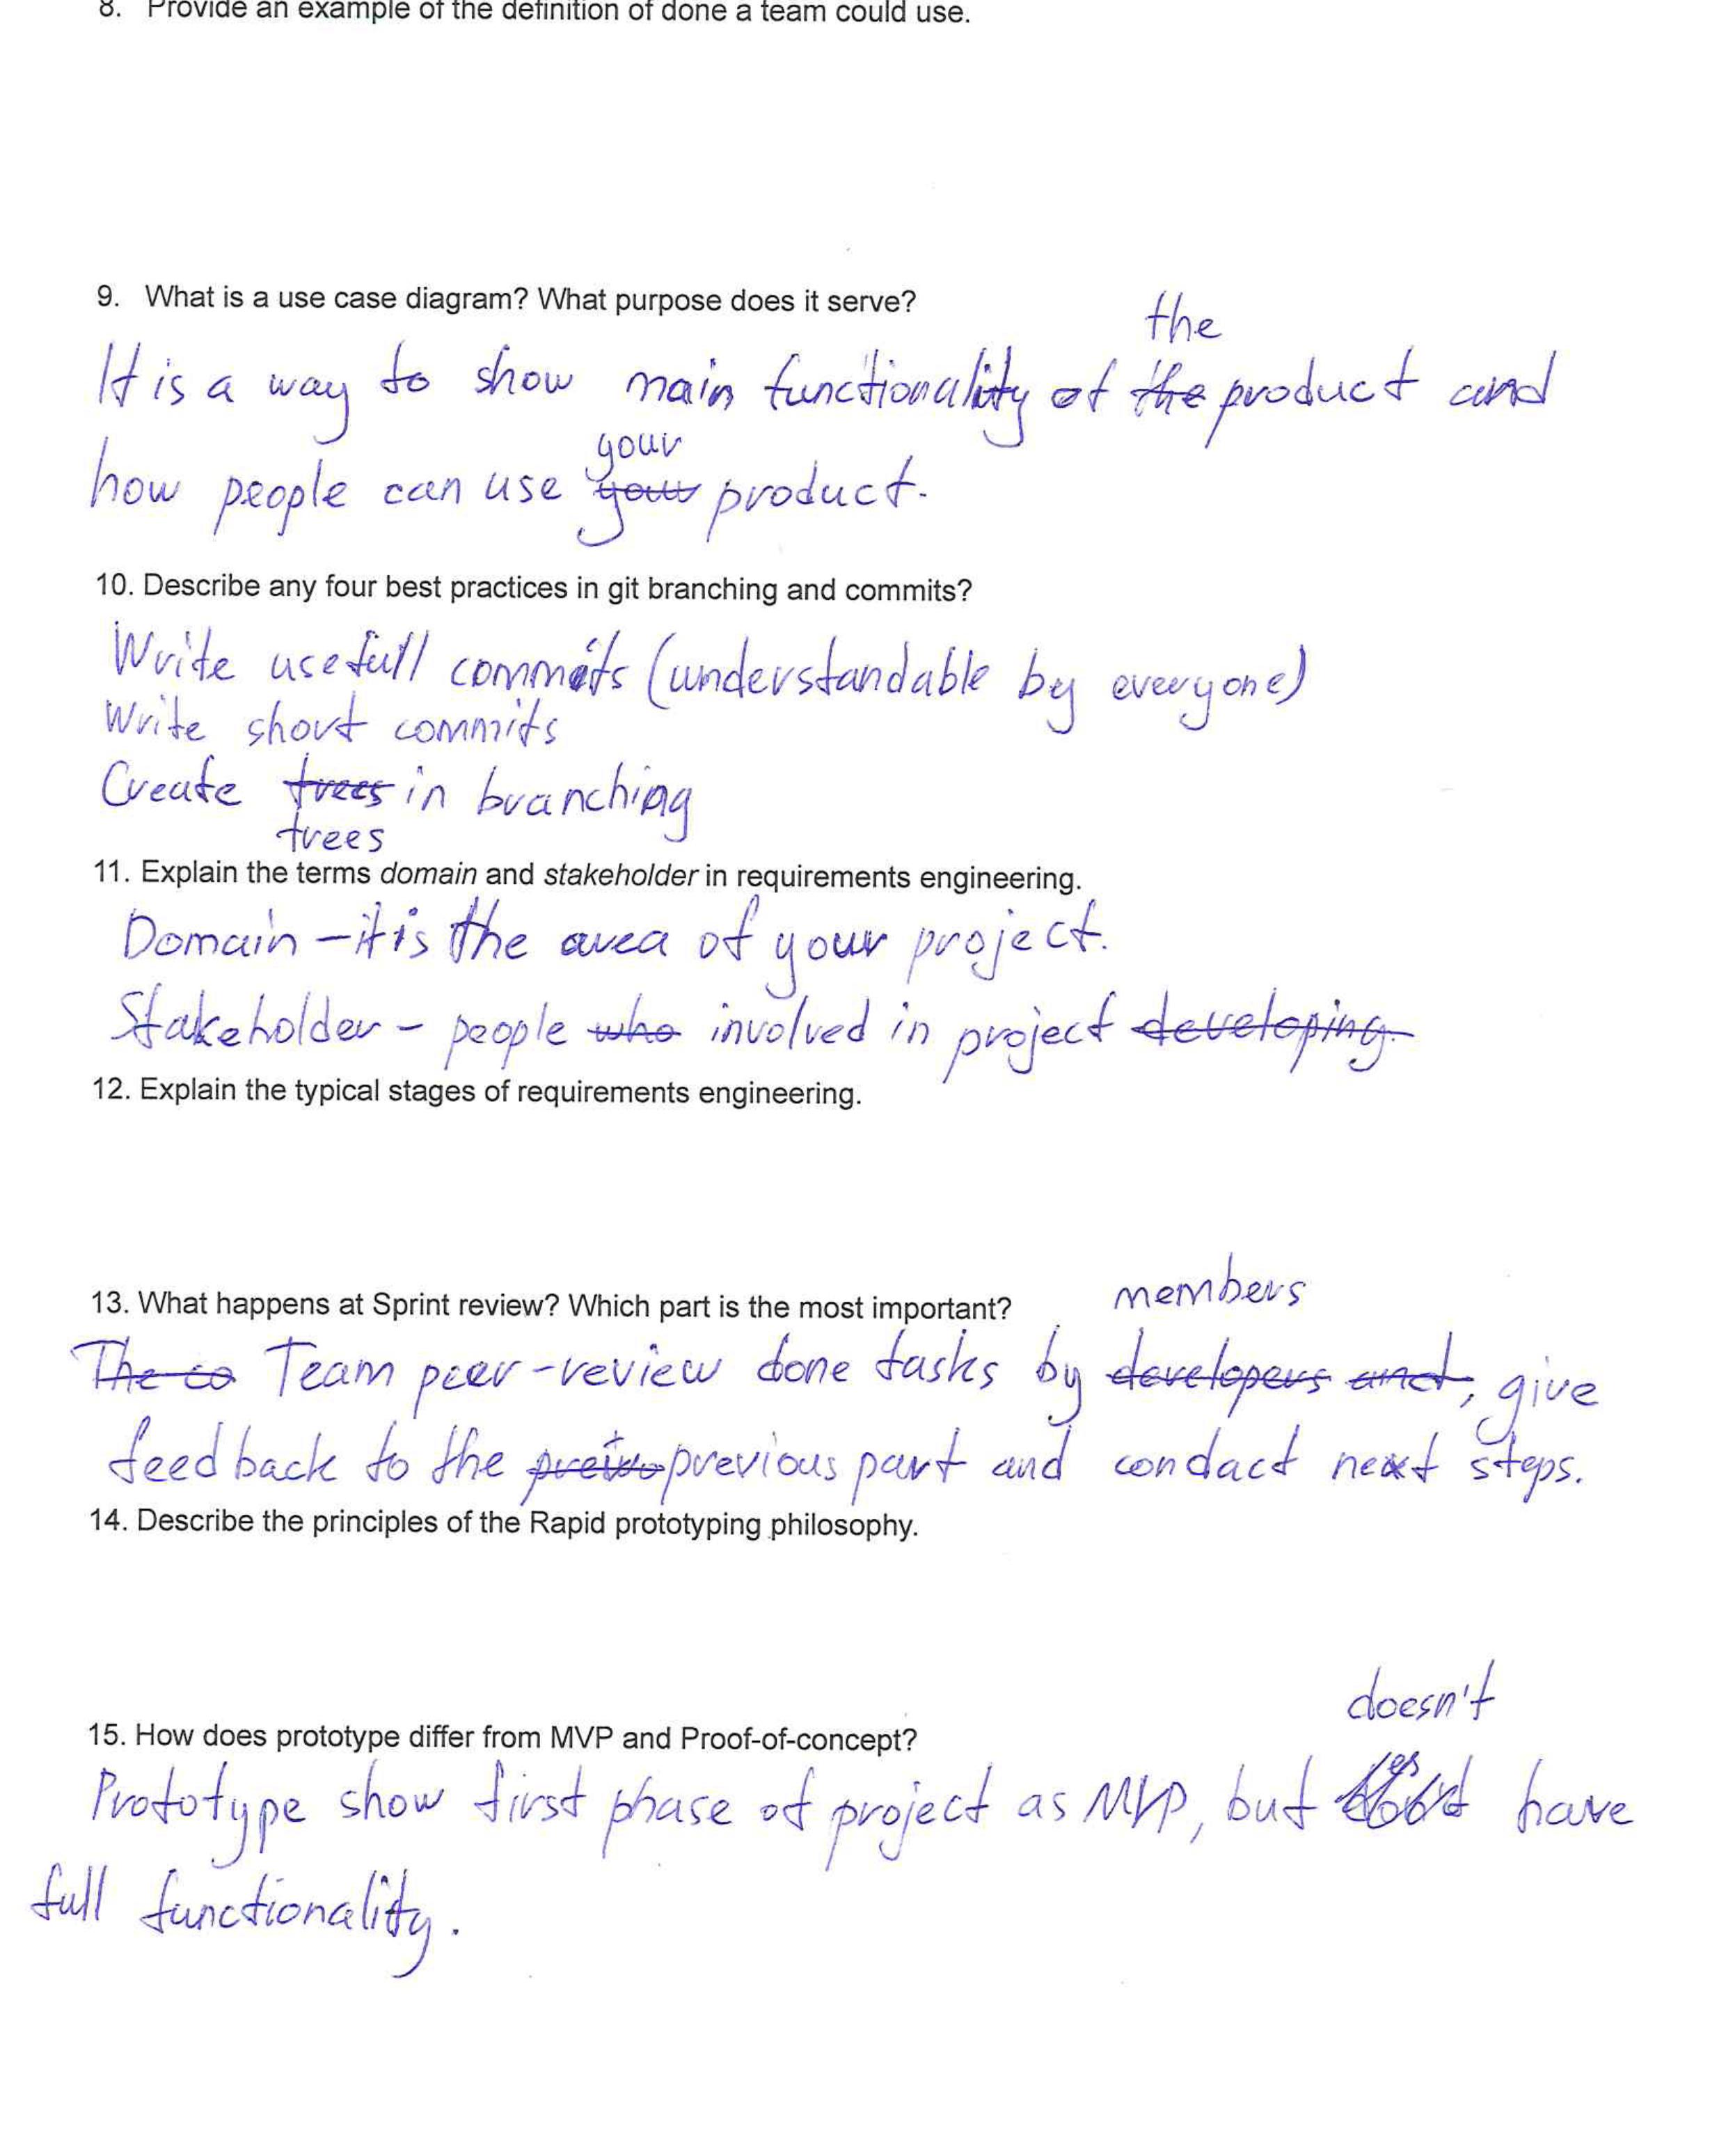 8. Provide an example of the definition of done a team could use.
9. What is a use case diagram? What purpose does it serve?
the
It is a way to show main functionality of the product and
your
how people can use your product.
10. Describe any four best practices in git branching and commits?
Write usefull commits (understandable by everyone)
Write short commits
Create trees in branching
trees
11. Explain the terms domain and stakeholder in requirements engineering.
Domain - it is the area of your project.
Stakeholder - people who involved in project developing.
12. Explain the typical stages of requirements engineering.
13. What happens at Sprint review? Which part is the most important?
members
The co Team peer-review done tasks by developers and, give
feedback to the previous part and condact next steps.
14. Describe the principles of the Rapid prototyping philosophy.
15. How does prototype differ from MVP and Proof-of-concept?
doesn't
Prototype show first phase of project as MVP, but have
full functionality.